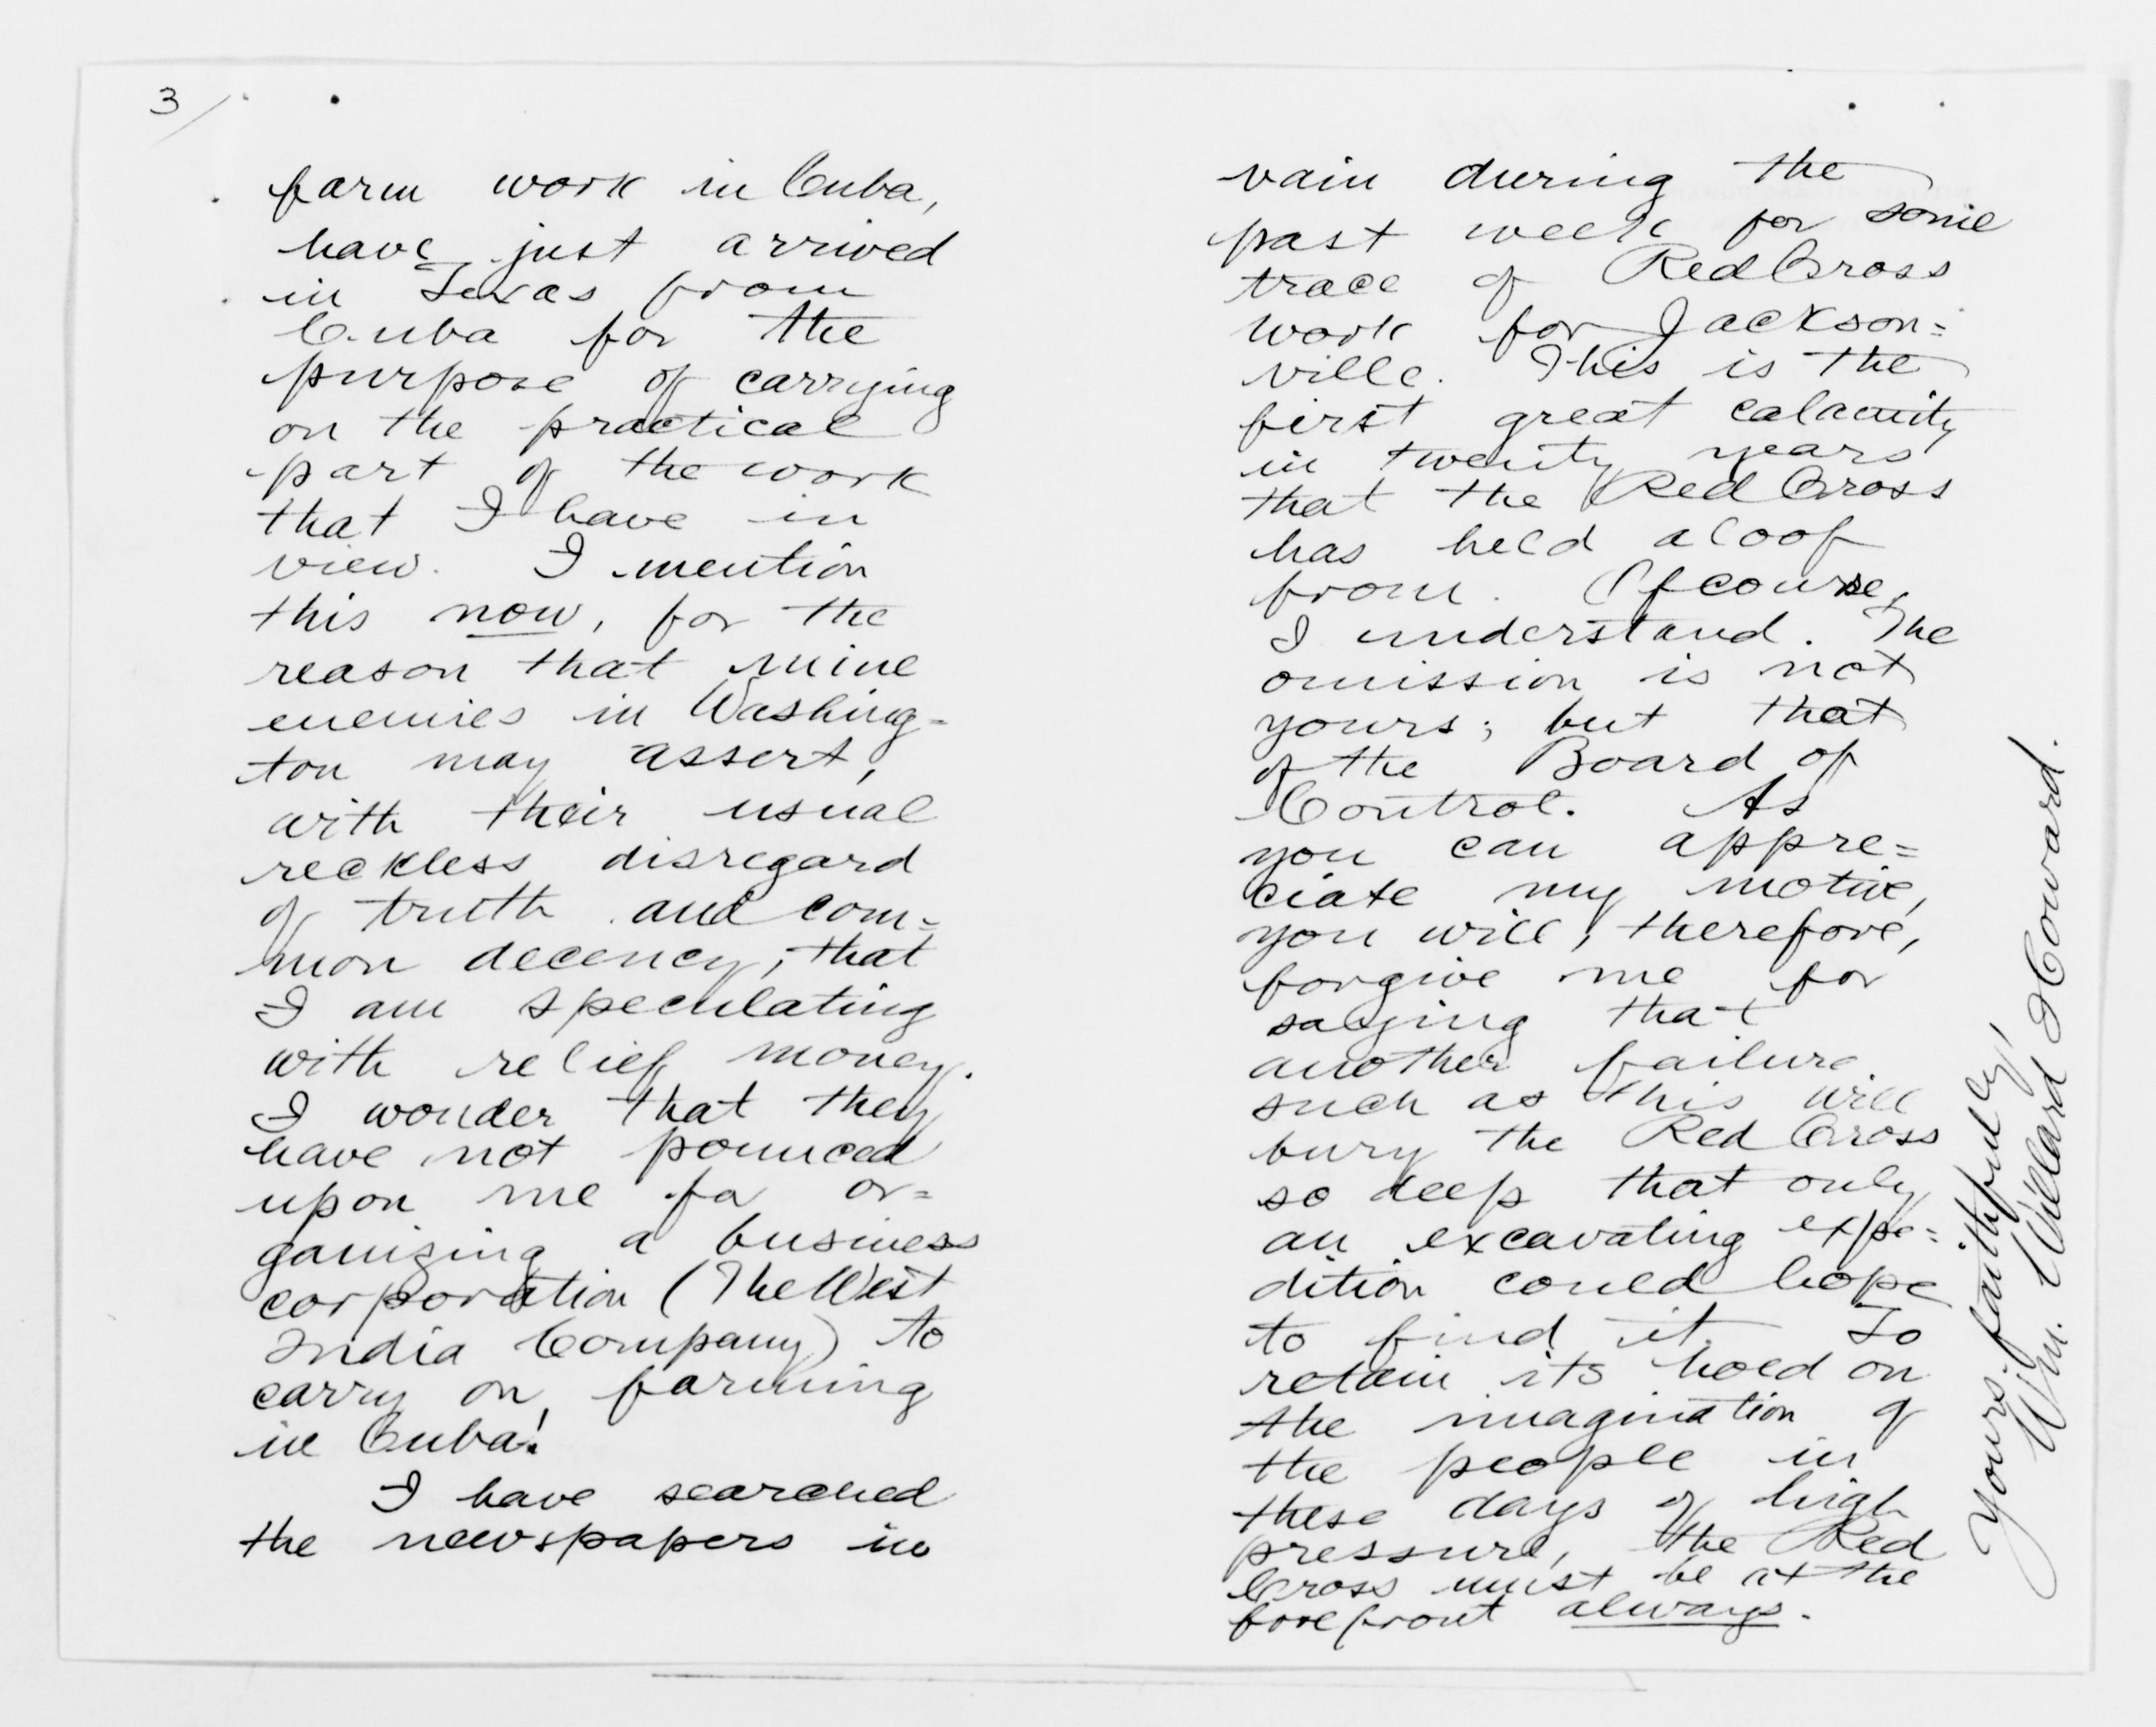 3/
farm work in Cuba,
have just arrived
in Texas from
Cuba for the
purpose of carrying
on the practical
part of the work
that I have in
view. I mention
this now, for the
reason that mine
enemies in Washing=
ton may assert,
with their usual
reckless disregard
of truth and com=
mon decency, that
I am speculating
with relief money.
I wonder that they
have not pounced
upon me for or=
ganizing a business
corporation (The West
India Company) to
carry on farming
in Cuba!
I have searched
the newspapers in
vain during the
past week for some
trace of Red Cross
work for Jackson=
ville. This is the
first great calamity
in twenty years
that the Red Cross
has held aloof
from. Of course,
I understand. The
omission is not
yours; but that
of the Board of
Control. As
you can appre=
ciate my motive,
you will, therefore,
forgive me for
saying that
another failure
such as this will
bury the Red Cross
so deep that only
an excavating expe=
dition could hope
to find it. To
retain its hold on
the imagination of
the people in
these days of high
pressure, the Red
Cross must be at the
forefront always.
Yours faithfully,
Wm. Willard Howard.